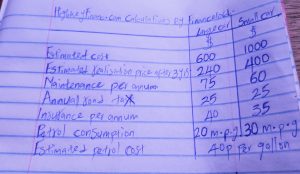 Highkeyfinance.com Calculations By Financeladd
Large car Small car
$ $
Estimated cost 600 1000
Estimated realisation price after 3 yrs 240 400
Maintenance per annum 75 60
Annual road tax 25 25
Insurance per annum 40 35
Petrol consumption 20 m.p.g 30 m.p.g
Estimated petrol cost 40p per gallon